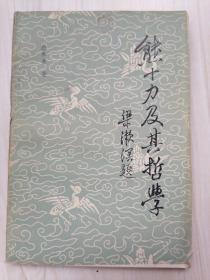 熊十力及其哲學
梁漱溟題